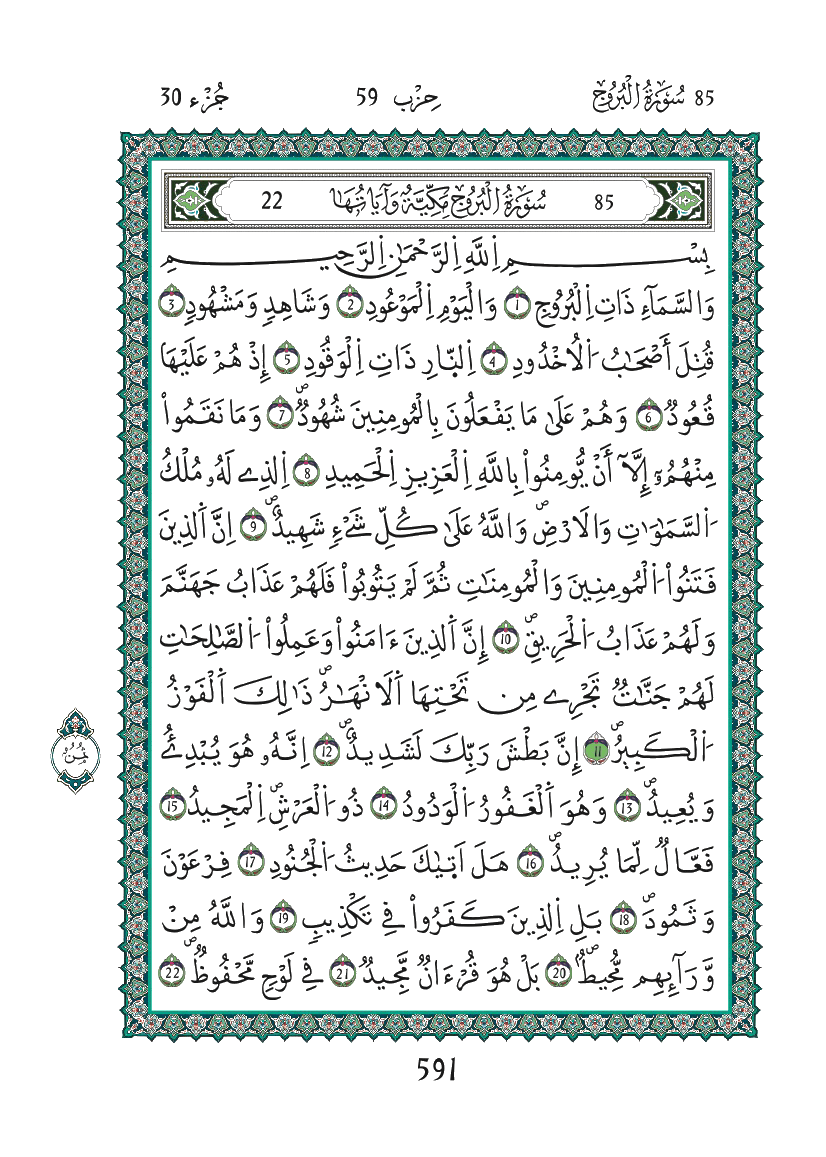 85 سُورَةُ الْبُرُوجِ حِزْب 59 جُزْء 30
85 سُورَةُ الْبُرُوجِ مَكِّيَّةٌ وَآيَاتُهَا 22
بِسْمِ اِ۬للَّهِ اِ۬لرَّحْمَٰنِ اِ۬لرَّحِيمِ
وَالسَّمَآءِ ذَاتِ اِ۬لْبُرُوجِ 1 وَالْيَوْمِ اِ۬لْمَوْعُودِ 2 وَشَاهِدٍ وَمَشْهُودٍ 3
قُتِلَ أَصْحَٰبُ اُ۬لُاخْدُودِ 4 اِ۬لنَّارِ ذَاتِ اِ۬لْوَقُودِ 5 إِذْ هُمْ عَلَيْهَا
قُعُودٌ 6 وَهُمْ عَلَىٰ مَا يَفْعَلُونَ بِالْمُومِنِينَ شُهُودٌۖ 7 وَمَا نَقَمُواْ
مِنْهُمُۥٓ إِلَّآ أَنْ يُّومِنُواْ بِاللَّهِ اِ۬لْعَزِيزِ اِ۬لْحَمِيدِ 8 اِ۬لذِے لَهُۥ مُلْكُ
اُ۬لسَّمَٰوَٰتِ وَالَارْضِۖ وَاللَّهُ عَلَىٰ كُلِّ شَےْءٍ شَهِيدٌۖ 9 اِنَّ اَ۬لذِينَ
فَتَنُواْ اُ۬لْمُومِنِينَ وَالْمُومِنَٰتِ ثُمَّ لَمْ يَتُوبُواْ فَلَهُمْ عَذَابُ جَهَنَّمَ
وَلَهُمْ عَذَابُ اُ۬لْحَرِيقِۖ 10 إِنَّ اَ۬لذِينَ ءَامَنُواْ وَعَمِلُواْ اُ۬لصَّٰلِحَٰتِ
لَهُمْ جَنَّٰتٌ تَجْرِے مِن تَحْتِهَا اَ۬لَانْهَٰرُۖ ذَٰلِكَ اَ۬لْفَوْزُ
اُ۬لْكَبِيرُۖ 11 إِنَّ بَطْشَ رَبِّكَ لَشَدِيدٌۖ 12 اِنَّهُۥ هُوَ يُبْدِئُ
وَيُعِيدُۖ 13 وَهُوَ اَ۬لْغَفُورُ اُ۬لْوَدُودُ 14 ذُو اُ۬لْعَرْشِۖ اِ۬لْمَجِيدُ 15
فَعَّالٌ لِّمَا يُرِيدُۖ 16 هَلَ اَتٜيٰكَ حَدِيثُ اُ۬لْجُنُودِ 17 فِرْعَوْنَ
وَثَمُودَۖ 18 بَلِ اِ۬لذِينَ كَفَرُواْ فِے تَكْذِيبٍ 19 وَاللَّهُ مِنْ
وَّرَآئِهِم مُّحِيطٌۖ 20 بَلْ هُوَ قُرْءَانٌ مَّجِيدٌ 21 فِے لَوْحٍ مَّحْفُوظٌۖ 22
ثُمُنُ
591